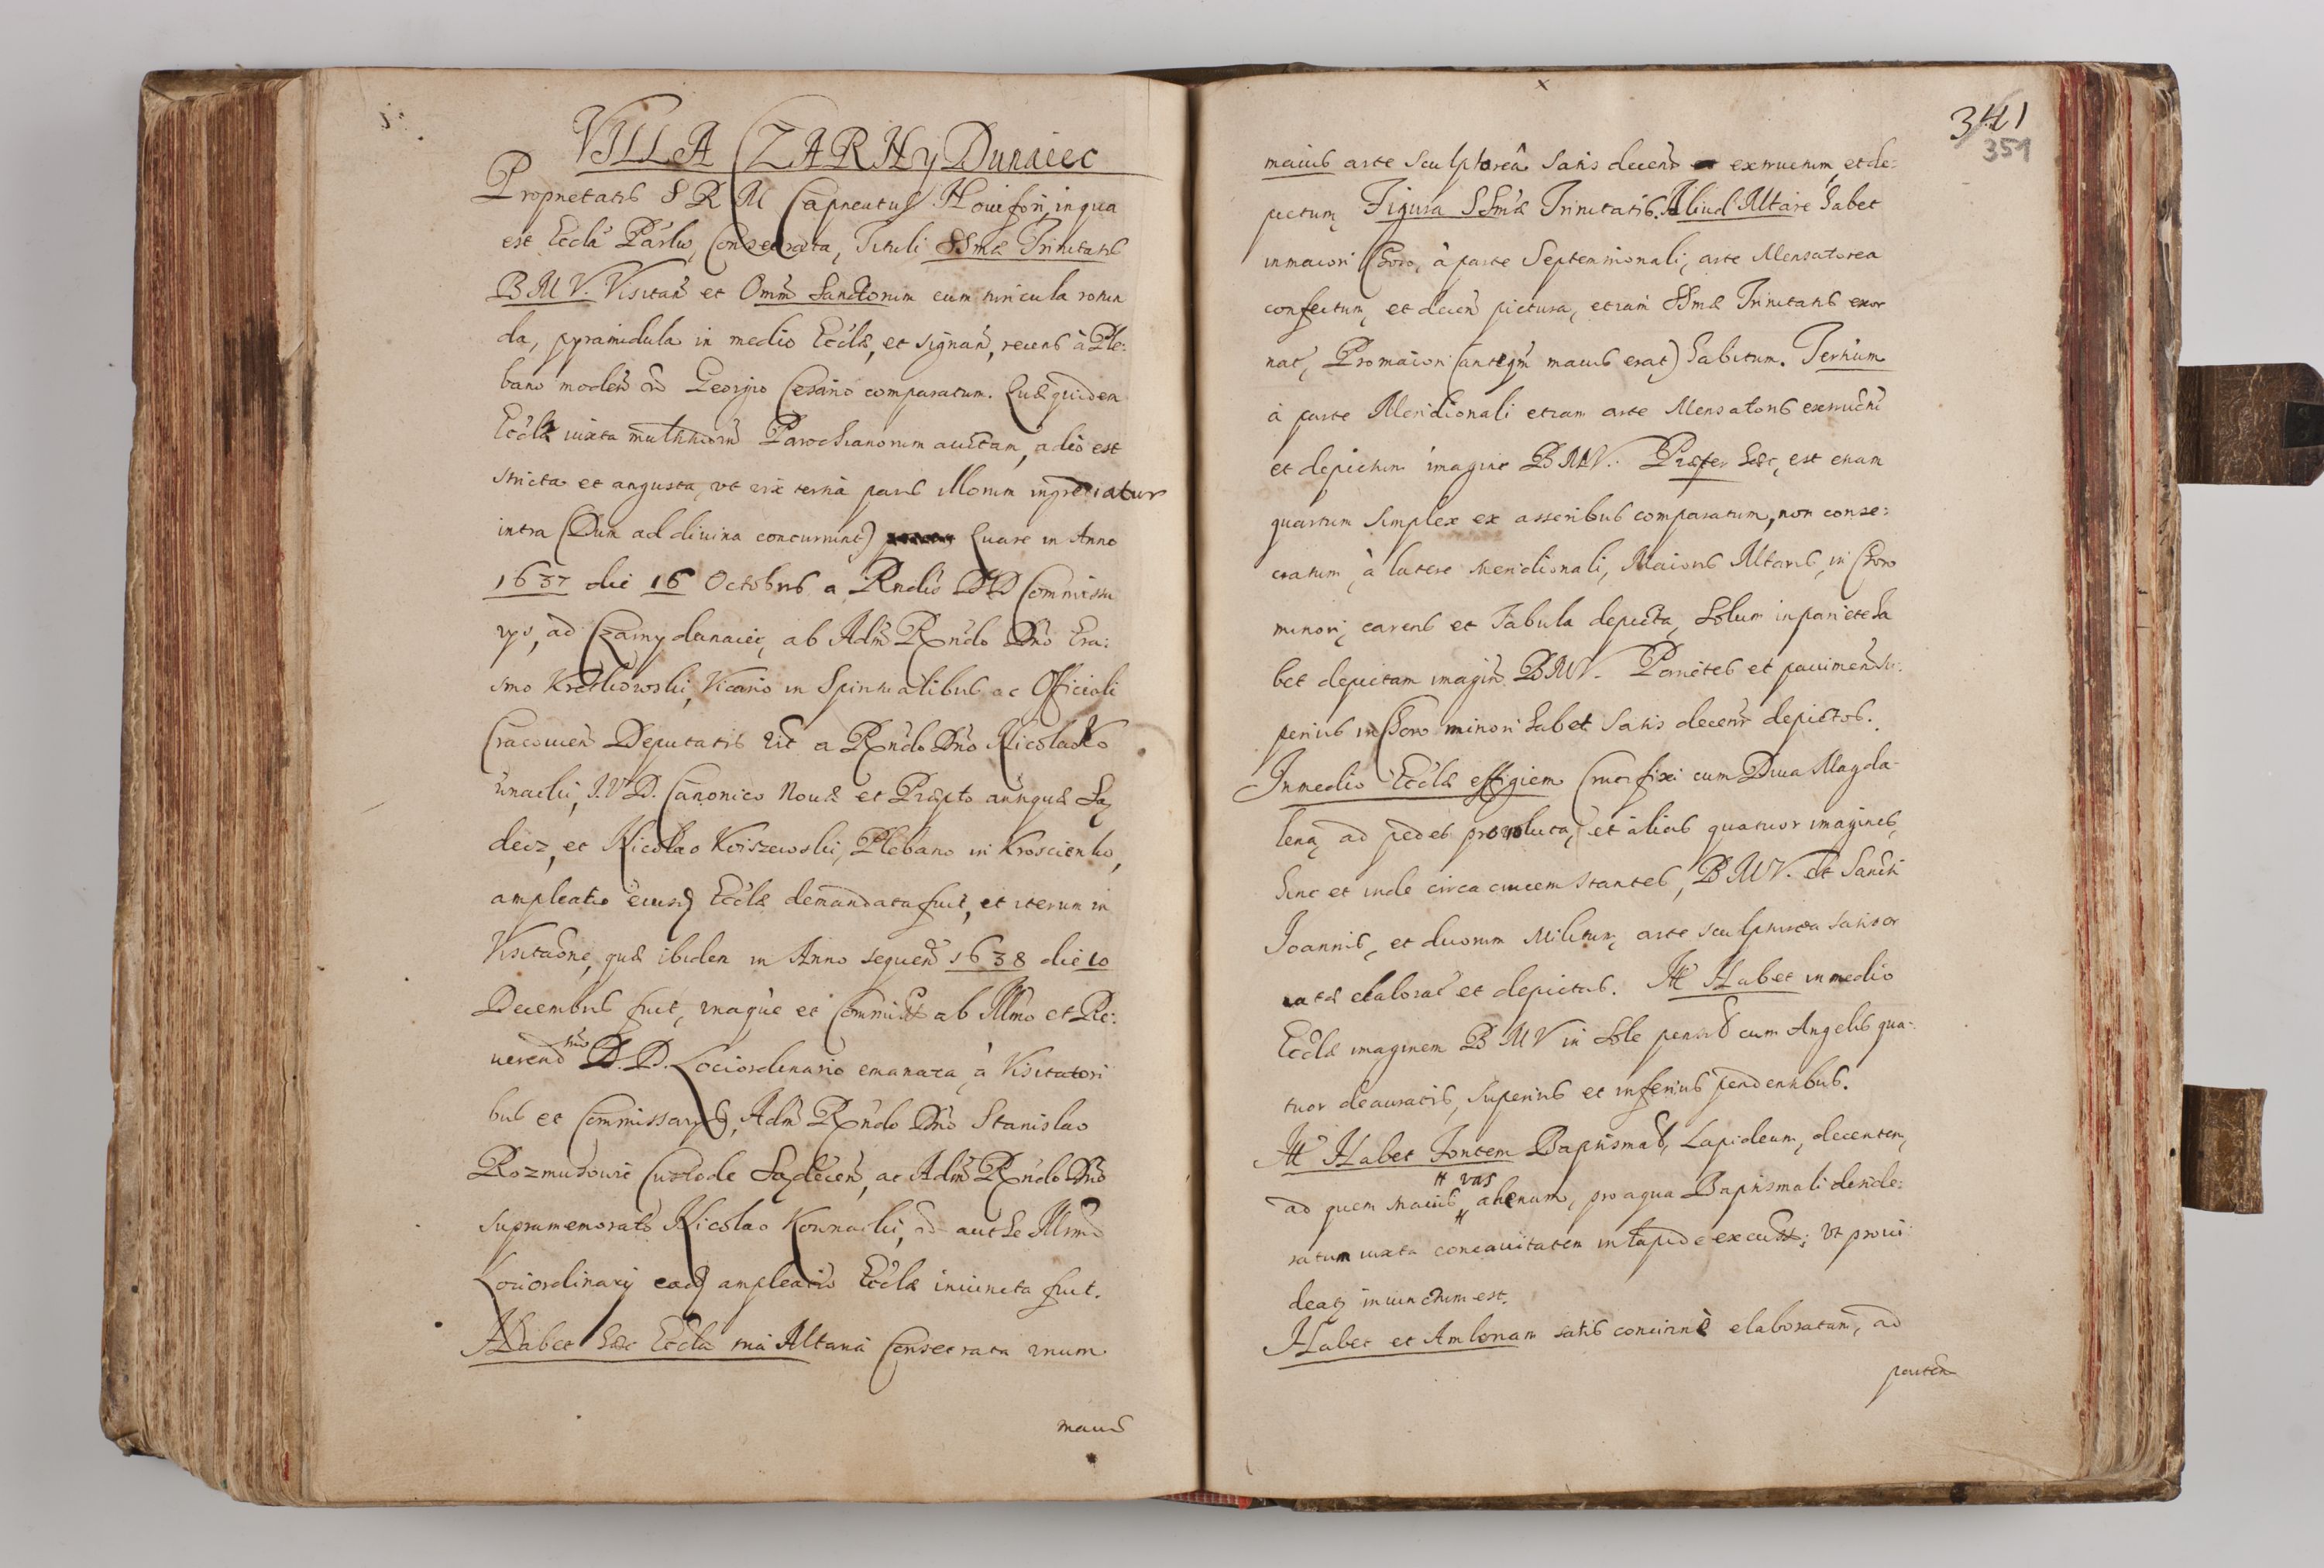 VILLA CZARNy Dunaiec
Proprietatis S R M Capneatus Nouifori, in qua
est Eccla Parlis, Consecrata, Tituli SSmæ Trinitatis
B M V. Visitan et Omm Sanctorum cum turricula rotun
da, pyramidula in medio Ecclæ, et signan, recens à Ple:
bano moder Georgio Cesario comparatum. Quæ quidem
Eccla iuxta multitudem Parochianorum auctam, adeo est
stricta et angusta, vt vix tertia pars illorum ingrediatur
intra (Dum ad diuina concurrunt) Quare in Anno
1637 die 16 Octobris a Rndis DD Commissa
rys, ad Czarny dunaiec, ab Adm Rndo Dno Era:
smo Kretkowski, Vicario in Spiritualibus ac Officiali
Cracouien Deputatis vit a Rndo Dno Nicolao Ko
wnacki, I.V.D. Canonico Nouæ et Præpto antiquæ Sa
decz, et Nicolao Koiszewski, Plebano in Kroscienko,
ampleatio eiusd Ecclæ demandata fuit, et iterum in
Visitaone, quæ ibidem in Anno sequen 1638 die 10
Decembris fuit, vnaque et Commiss ab Illmo et Re:
uerendmo D. D. Lociordinario emanata, à Visitatori
bus et Commissarys, Adm Rndo Dno Stanislao
Rozmusowic Custode Sądecen, ac Adm Rndo Dno
supramemorato Nicolao Kownacki, ad autho Illmi
Lociordinarij ead ampleatio Ecclæ iniuncta fuit.
Habet hæc Eccla tria Altaria Consecrata vnum
maius
341
351
maius arte sculptorea satis decent extructum, et de:
pictum, Figura SSmæ Trinitatis. Aliud Altare habet
in maiori Choro, à parte Septentrionali, arte Mensatorea
confectum, et decen pictura, etiam SSmæ Trinitatis exor
nat, Pro maiori (anteqm maius erat) habitum. Tertium
à parte Meridionali etiam arte Mensatoris extructu
et depictum imagine B M V. Præter hæc, est etiam
quartum simplex ex asseribus comparatum, non conse:
cratum, à latere Meridionali, Maioris Altaris, in Choro
minori, carens et Tabula depicta, solum in pariete ha
bet depictam imagin B M V. Parietes et pauimen su:
perius in Choro minori habet satis decent depictos.
In medio Ecclæ effigiem Crucifixi cum Diua Magda-
lena, ad pedes prouoluta, et alias quatuor imagines,
hinc et inde circa crucem stantes, B M V. et Sancti
Joannis, et duorum Militum, arte sculpturea satis or
natæ elaborat et depictas. It Habet in medio
Ecclæ imaginem B M V in Sole pensil cum Angelis qua:
tuor deauratis, superius et inferius pendentibus.
It Habet Fontem Baptismal, Lapideum, decentem,
ad quem maius # vas ahenum, pro aqua Baptismali deside:
ratum iuxta concauitatem in lapide excuss; vt proui
deat, iniunctum est.
Habet et Ambonam satis concinnè elaboratam, ad
partem